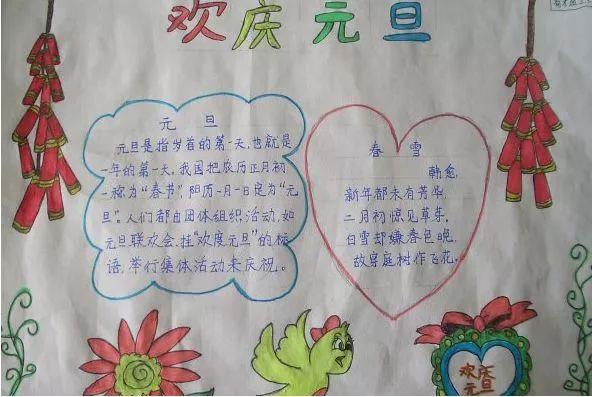 欢庆元旦
元旦
元旦是指岁首的第一天,也就是
一年的第一天,我国把农历正月初
一称为“春节”,阳历一月一日定为“元
旦”。人们都由团体组织活动,如
元旦联欢会、挂“欢度元旦”的标
语,举行集体活动来庆祝。
春雪
韩愈
新年都未有芳华,
二月初惊见草芽。
白雪却嫌春色晚,
故穿庭树作飞花。
欢庆
元旦